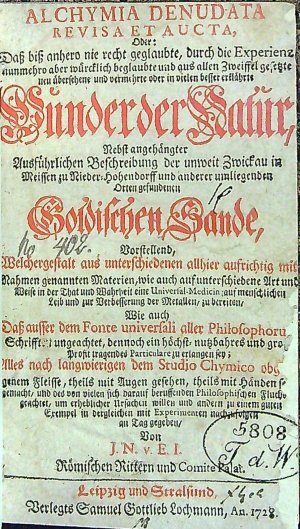 ALCHYMIA DENUDATA
REVISA ET AUCTA,
Oder:
Daß biß anhero nie recht geglaubte, durch die Experienz
nunmehro aber würcklich beglaubte und aus allen Zweiffel gesetzte
neu übersehene und vermehrte oder in vielen besser erklährte
Wunder der Natur,
Nebst angehängter
Ausführlichen Beschreibung der unweit Zwickau in
Meissen zu Nieder-Hohendorff und anderer umliegenden
Orten gefundenen
Goldischen Sande,
No 402.
Vorstellend,
Welchergestalt aus unterschiedenen allhier aufrichtig mit
Nahmen genannten Materien, wie auch auf unterschiedene Art und
Weise in der That und Wahrheit eine Universal-Medicin auf menschlichen
Leib und zur Verbesserung der Metallen, zu bereiten,
Wie auch
Daß ausser dem Fonte universali aller Philosophoru
Schrifft ungeachtet, dennoch ein höchst-nutzbahres und gro
Profit tragendes Particulare zu erlangen sey;
Alles nach langwierigen dem Studio Chymico obg
genem Fleisse, theils mit Augen gesehen, theils mit Händen
gemacht, und des von vielen sich darauf beruffenden Philosophischen Fluchs
geachtet, um erheblicher Ursachen willen und andern zu einem guten
Exempel in dergleichen mit Experimenten nachzufolgen
an Tag gegeben/
Von
J. N. v. E. I.
Römischen Rittern und Comite Palat.
5808
T. d. W.
Leipzig und Stralsund,
Verlegts Samuel Gottlieb Lochmann, An. 1728.